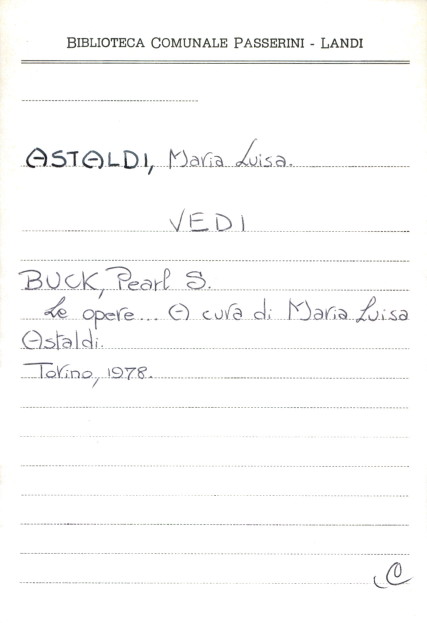 BIBLIOTECA COMUNALE PASSERINI - LANDI
ASTALDI, Maria Luisa.
VEDI
BUCK, Pearl S.
Le opere... A cura di Maria Luisa
Astaldi.
Torino, 1978.